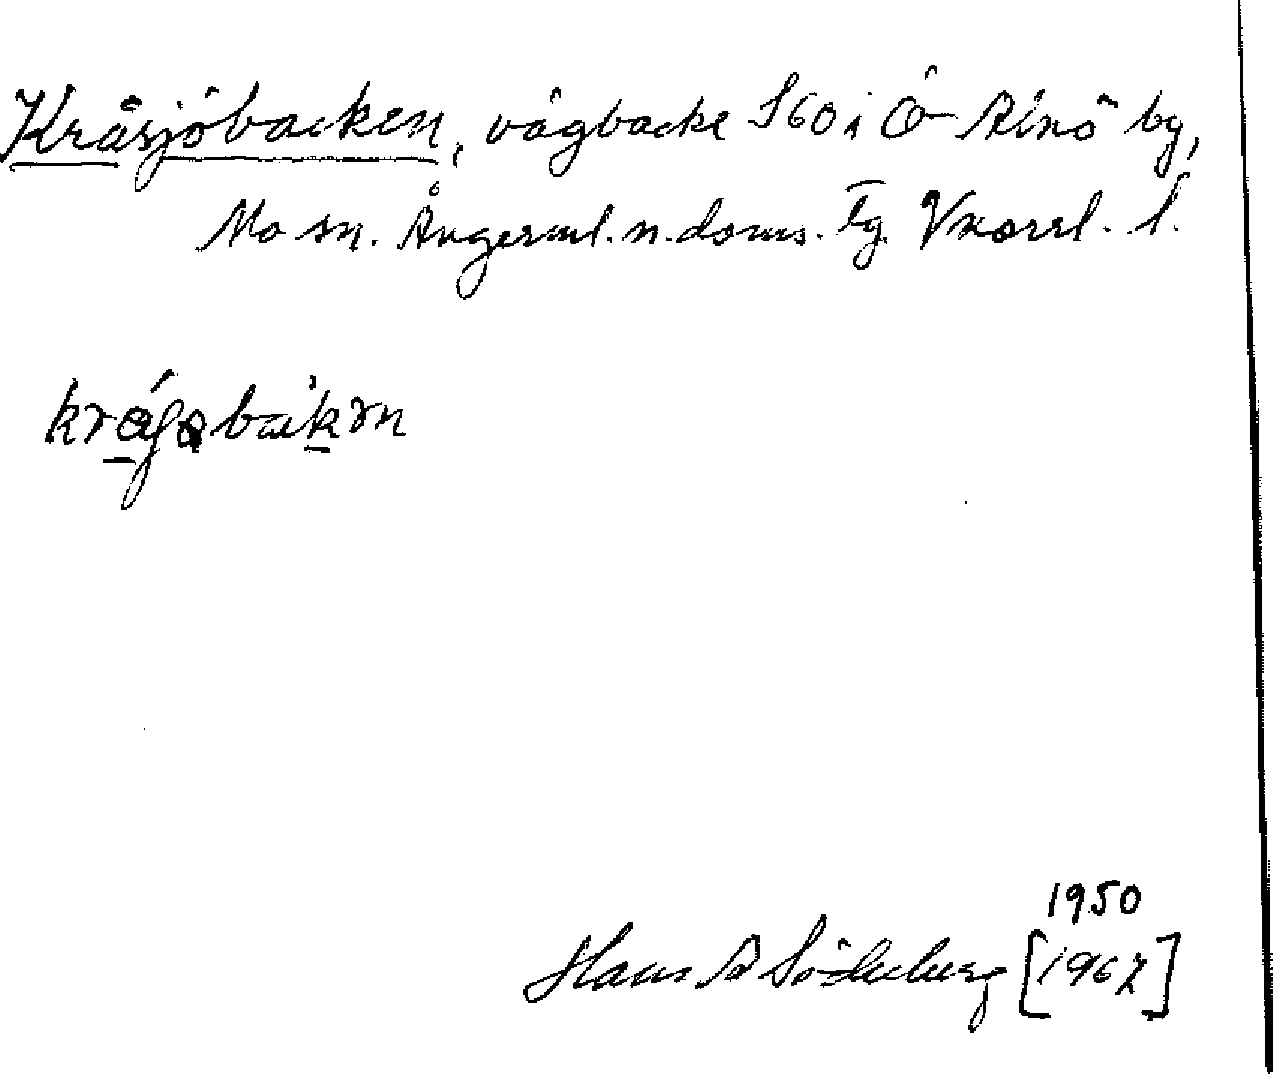 Kråsjöbacken, vägbacke SO i Ö Alnö by,
Mo sn. Ångerml. n. doms. tg. Vnorrl. l.
Hans A Söderberg [1967]
1950